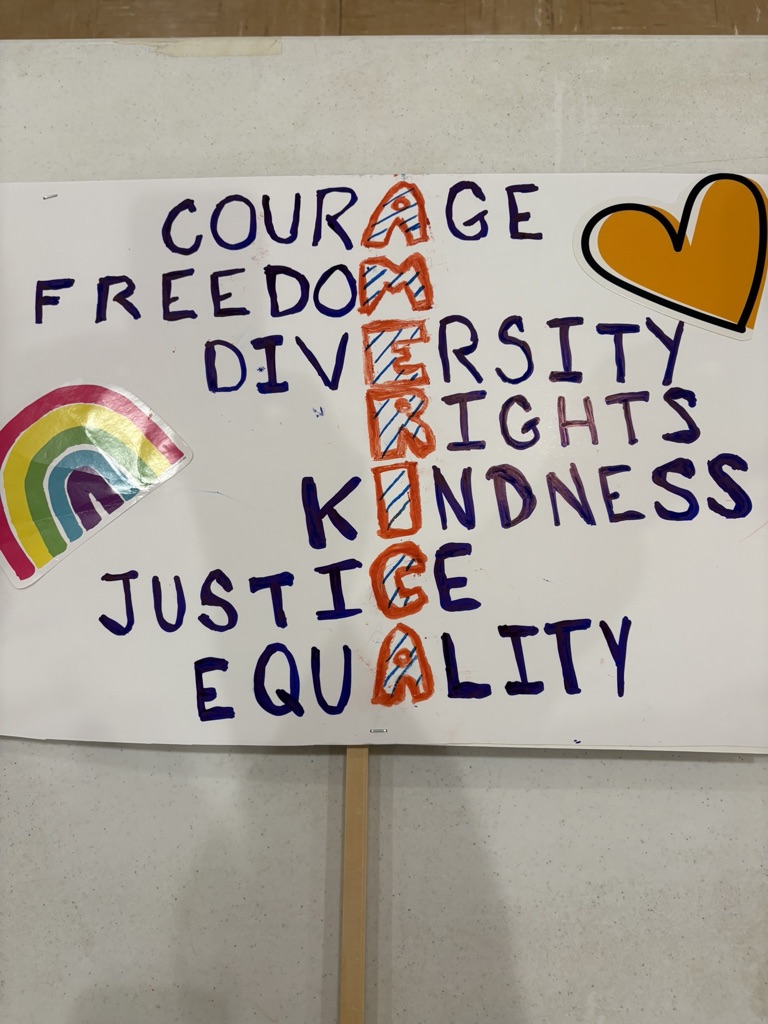 COURAGE
FREEDOM
DIVERSITY
RIGHTS
KINDNESS
JUSTICE
EQUALITY